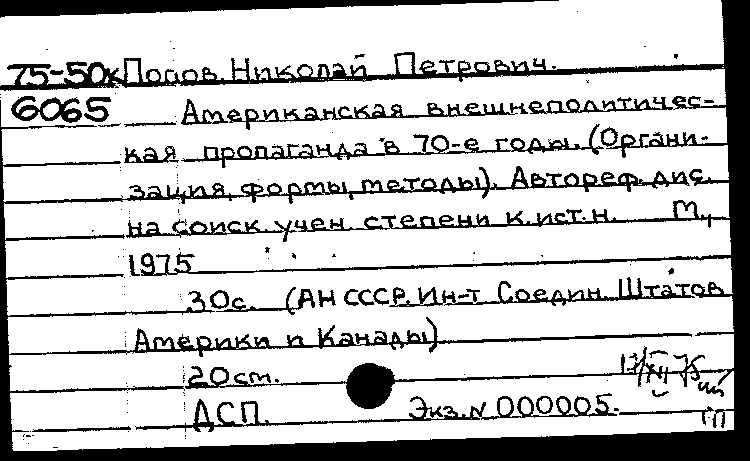 75-50к Попов Николай Петрович.
6065 Американская внешнеполитичес-
кая пропаганда в 70-е годы. (Органи-
зация, формы, методы). Автореф. дис.
на соиск. учен. степени к.ист.н. М.,
1975
30с. (АН СССР. Ин-т Соедин. Штатов
Америки и Канады)
20см.
ДСП. Экз.N 000005.